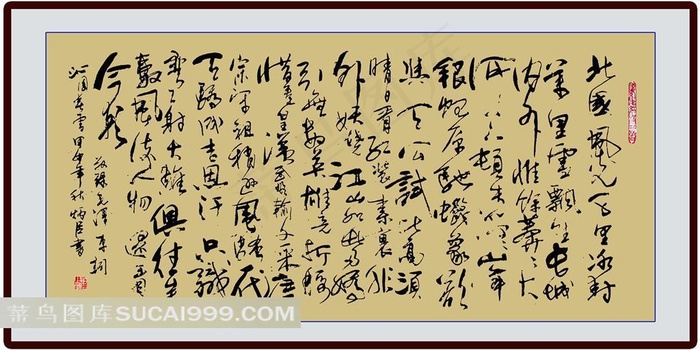 北國風光千里冰封
萬里雪飄望长城
内外惟餘莽莽大
河上下顿失滔滔山舞
银蛇原驰蠟象欲
與天公試比高须
晴日看红装素裹分
外妖娆江山如此多嬌
引無数英雄竞折腰
惜秦皇漢武略输文采唐
宗宋祖稍逊風骚一代
天骄成吉思汗只識
弯弓射大雕俱往矣
數風流人物還看
今朝
敬録毛泽东詞
沁园春雪甲午年秋炳臣書
菜鸟图库SUCAI999.COM
菜鸟图库